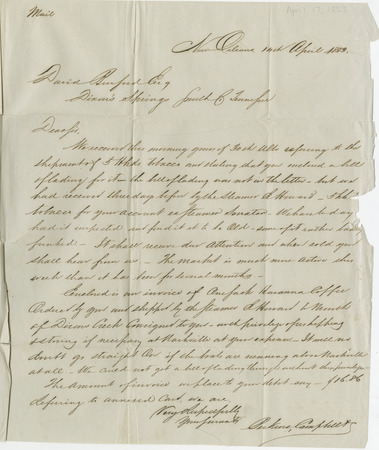 Mail
April 17, 1853
New Orleans April
David Burford Esq
Dixon's Springs Smith C Tennessee
Dear Sir
We received this morning yours of referring to the
shipment of 5 Hhds Tobacco and stating that you enclosed a bill
of lading for it the bill of lading was not in the letter but we
had received three days before by the Steamer
tobacco for your account Steamer Senator We have to day
had it inspected and find it to be Old some of it rather
It shall receive our attention and when sold you
shall hear from us The market is much more active this
week than it has been for several months
Enclosed is our invoice of One Sack Havanna Coffee
Ordered by you and shipped by the Steamer to mouth
of Dixon Creek Consigned to you with privilege of reshipping
storing if necessary at Nashville at your expense It will no
doubt go straight if the boats are running above Nashville
at all We could not get a bill of lading through without this privilege
The amount of invoice we place to your debit say $16.86
Referring to annexed we are
Very Respectfully
Your Servants
Perkins, Campbell & Co